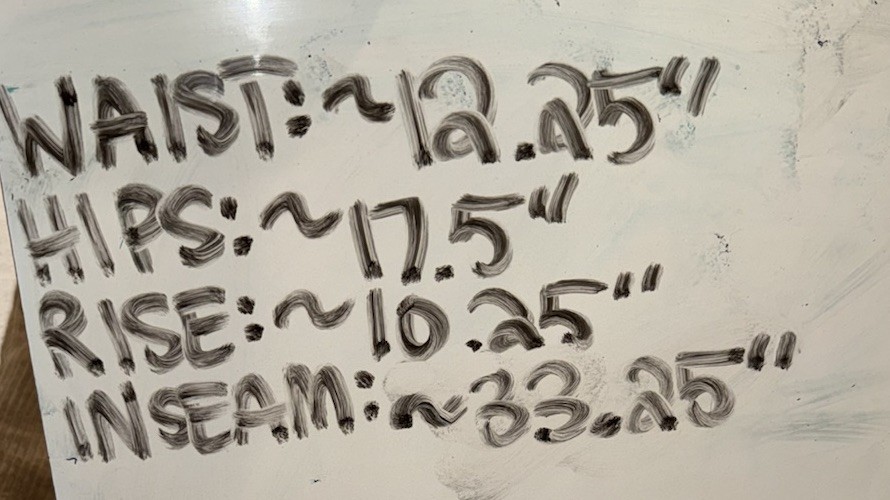 WAIST: ~12.25"
HIPS: ~17.5"
RISE: ~10.25"
INSEAM: ~33.25"